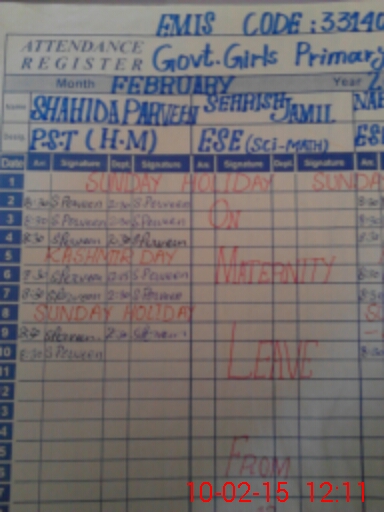 EMIS CODE: 33140
ATTENDANCE REGISTER Govt. Girls Primary
Month FEBRUARY Year 2
Name SHAHIDA PARVEEN SEHRISH JAMIL
Desig. P.S.T (H.M) ESE (SCI-MATH) ES
Date Arr. Signature Dept. Signature Arr. Signature Dept. Signature Arr.
1 SUNDAY HOLIDAY SUNDA
2 8:30 S Parveen 2:30 S Parveen 8:30
3 8:30 S Parveen 2:30 S Parveen ON
4 8:30 S Parveen 2:30 S Parveen
5 KASHMIR DAY
6 S Parveen S Parveen MATERNITY
7 8:30 S Parveen 2:30 S Parveen
8 SUNDAY HOLIDAY
9 S Parveen
10 8:30 S Parveen LEAVE 8:30
11
2
3
4
5 FROM
6
10-02-15 12:11